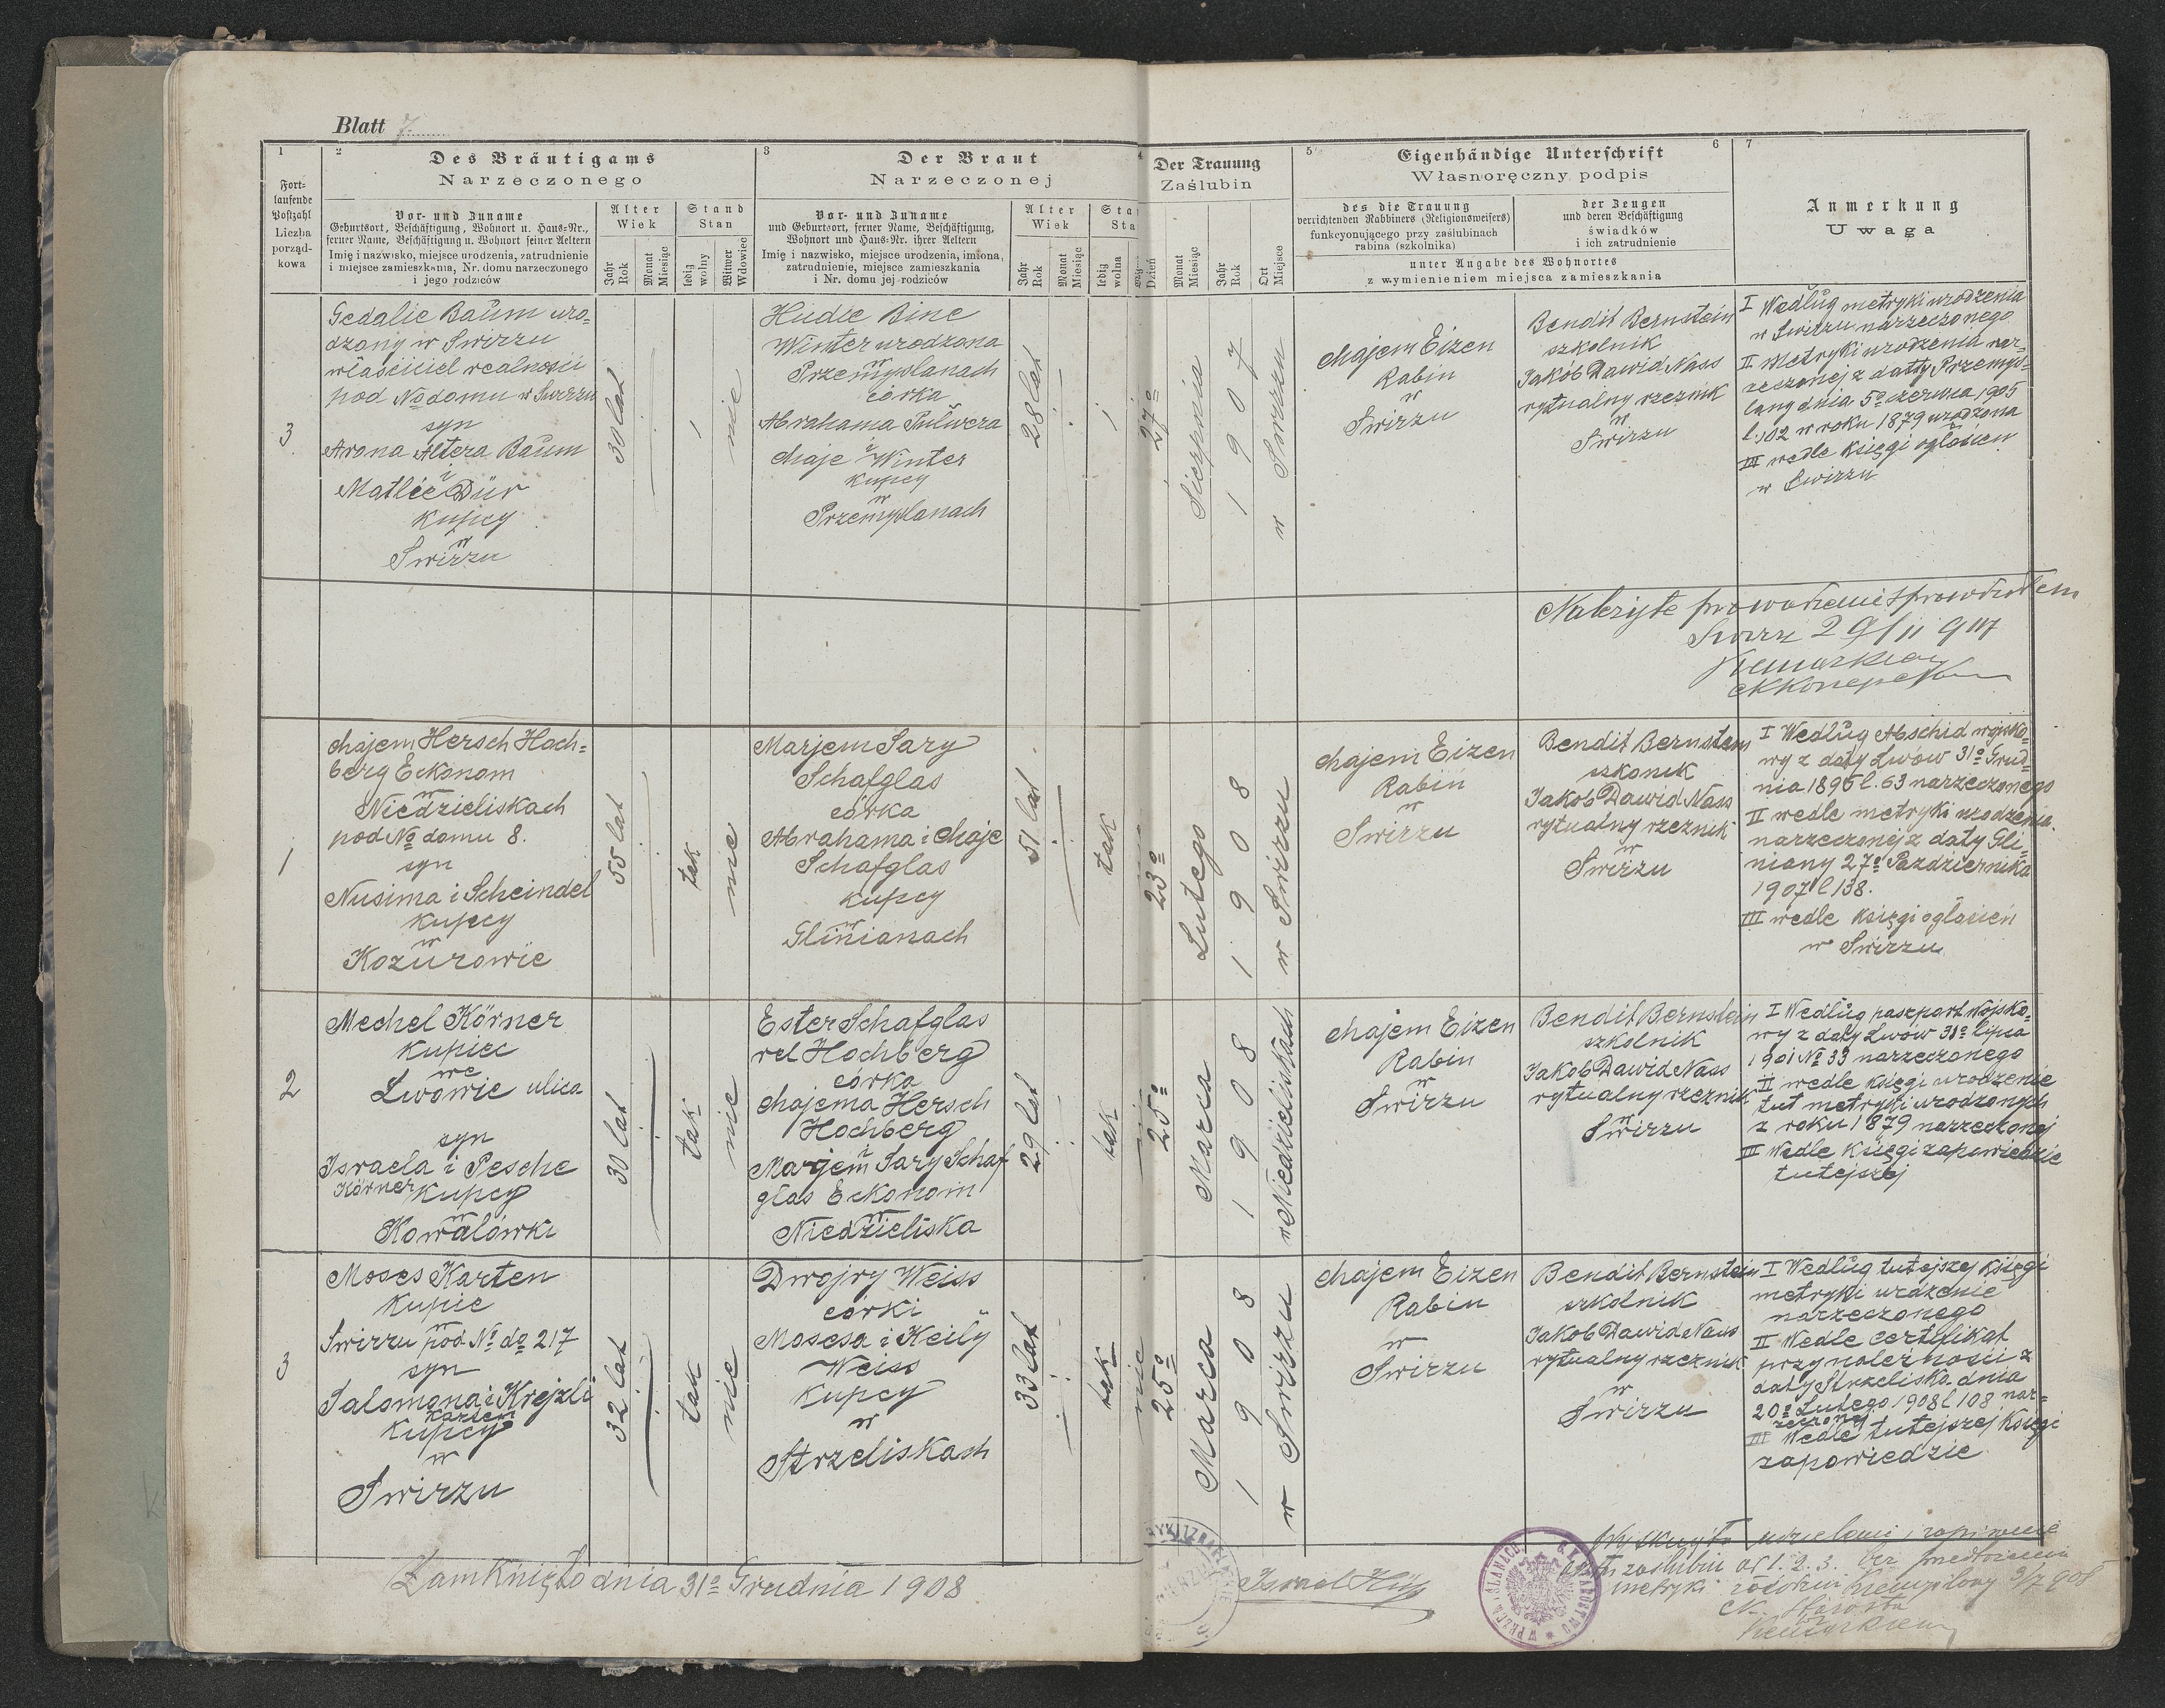 Blatt 7
1
Fort-
laufende
Postzahl
Liczba
porząd-
kowa
2
Des Bräutigams
Narzeczonego
Vor- und Zuname
Geburtsort, Beschäftigung, Wohnort u. Haus-Nr.,
ferner Name, Beschäftigung u. Wohnort seiner Aeltern
Imię i nazwisko, miejsce urodzenia, zatrudnienie
i miejsce zamieszkania, Nr. domu narzeczonego
i jego rodziców
Alter
Wiek
Jahr
Rok
Monat
Miesiąc
Stand
Stan
ledig
wolny
Witwer
Wdowiec
3
Der Braut
Narzeczonej
Vor- und Zuname
und Geburtsort, ferner Name, Beschäftigung,
Wohnort und Haus-Nr. ihrer Aeltern
Imię i nazwisko, miejsce urodzenia, imiona,
zatrudnienie, miejsce zamieszkania
i Nr. domu jej rodziców
Alter
Wiek
Jahr
Rok
Monat
Miesiąc
Sta
Sta
ledig
wolna
4
Der Trauung
Zaślubin
Dzień
Monat
Miesiąc
Jahr
Rok
Ort
Miejsce
5
Eigenhändige Unterschrift
6
Własnoręczny podpis
des die Trauung
verrichtenden Rabbiners (Religionsweisers)
funkcyonującego przy zaślubinach
rabina (szkolnika)
der Zeugen
und deren Beschäftigung
świadków
i ich zatrudnienie
unter Angabe des Wohnortes
z wymienieniem miejsca zamieszkania
7
Anmerkung
Uwaga
3
Gedalie Baŭm uro-
dzony w Swirzu
właściciel realności
pod No domu w Swirzu
syn
Arona Altera Baŭm
i
Matlie Dür
Kupcy
w
Swirzu
30 lat
1
nie
Hudie Bine
Winter urodzona
w
Przemyslanach
córka
Abrahama Pulwera
i
Chaje Winter
kupcy
w
Przemyslanach
28 lat
1
27o
Sierpnia
1907
w Swirzu
Chajem Eizen
Rabin
w
Swirzu
Bendit Bernstein
szkolnik
Jakob Dawid Nass
rytualny rzeznik
w
Swirzu
I Wedlŭg metryki urodzenia
w Swirzu narzeczonego
II Metryki urodzenia nar-
zeczonej z datty Przemyś-
lany dnia 5o czerwca 1905
l. 102 w roku 1879 urodzona
III wedle księgi ogłosień
w Swirzu
Należyte prowadzenie sprawdziłem
Swirz 29/11 907
1
Chajem Hersch Hoch=
berg Eckonom
w
Niedzieliskach
pod No domu 8.
syn
Nusima i Scheindel
Kupcy
w
Kozŭrowie
55 lat
tak
nie
Marjem Sary
Schafglas
córka
Abrahama i Chaje
Schafglas
kupcy
w
Glinianach
51 lat
tak
23o
Lutego
1908
w Swirzu
Chajem Eizen
Rabin
w
Swirzu
Bendit Bernstein
szkonik
Jakob Dawid Nass
rytualny rzeznik
w
Swirzu
I Wedlŭg Abschid wojsko-
wy z daty Lwów 31o Grud-
nia 1896 l. 63 narzeczonego
II wedle metryki urodzenia
narzeczonej z daty Gli-
niany 27o Pazdziernika
1907 l 138.
III wedle księgi ogłosień
w Swirzu
2
Mechel Körner
Kupiec
we
Lwowie ulica
syn
Israela i Pesche
Körner Kupcy
w
Kowalówki
30 lat
tak
nie
Ester Schafglas
rel Hochberg
córka
Chajema Hersch
Hochberg
i
Marjem Sary Schaf
glas Eckonom
w
Niedzieliska
29 lat
tak
nie
25o
Marca
1908
w Niedzieliskach
Chajem Eizen
Rabin
w
Swirzu
Bendit Bernstein
szkolnik
Jakob Dawid Nass
rytualny rzeznik
w
Swirzu
I Wedlŭg paszport Wojsko-
wy z daty Lwów 31o lipca
1901 No 33 narzeczonego
II wedle księgi urodzenie
tut metryki urodzonych
z roku 1879 narzeczonej
III Wedle Księgi zapowiedzie
tutejszej
3
Moses Karten
Kupic
w
Swirzu pod No do 217
syn
Salomona i Krejzli
Karten
Kupcy
w
Swirzu
32 lat
tak
nie
Dwojry Weiss
córki
Mosesa i Keily
Weiss
Kupcy
w
Strzeliskach
33 lat
tak
nie
25o
Marca
1908
w Swirzu
Chajem Eizen
Rabin
w
Swirzu
Bendit Bernstein
szkolnik
Jakob Dawid Nass
rytualny rzeznik
w
Swirzu
I Wedlŭg tutejszej Księgi
metryki urdzenie
narzeczonego
II Wedle Certyfikat
przynależności z
daty Strzeliska dnia
20o Lutego 1908 l 108 nar-
zeczonej
III Wedle tutejszej Księgi
zapowiedzie
Zamknięto dnia 31o Grudnia 1908
udzielanie i zapisanie
zaślubin ad 1. 2. 3. bez przedłożenia
metryki Przemyślany 3/7 908
Starosta